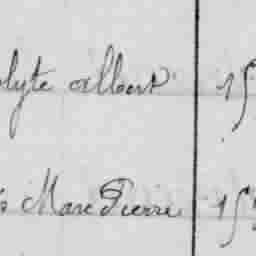 olyte albert 15
s Marc Pierre 15